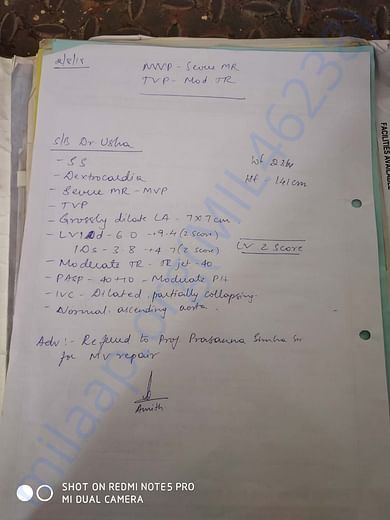 2/8/18
MVP - Severe MR
TVP - Mod TR
S/B Dr Usha
- SS
- Dextrocardia
- Severe MR - MVP
- TVP
- Grossly dilate LA - 7x7cm
- LVIDd - 6.0 → +9.4 (Z score)
IDs - 3.8 → +4.7 (Z score)
- Moderate TR - TR jet - 40
- PASP - 40+10 - Moderate PH
- IVC - Dilated, partially collapsing.
- Normal ascending aorta.
Wt 23kg
Ht - 141cm
LV Z score
Adv :- Referred to Prof Prasanna Simha Sir
for MV repair
Amith
FACILITIES AVAILABLE
milaap.org
SHOT ON REDMI NOTE 5 PRO
MI DUAL CAMERA